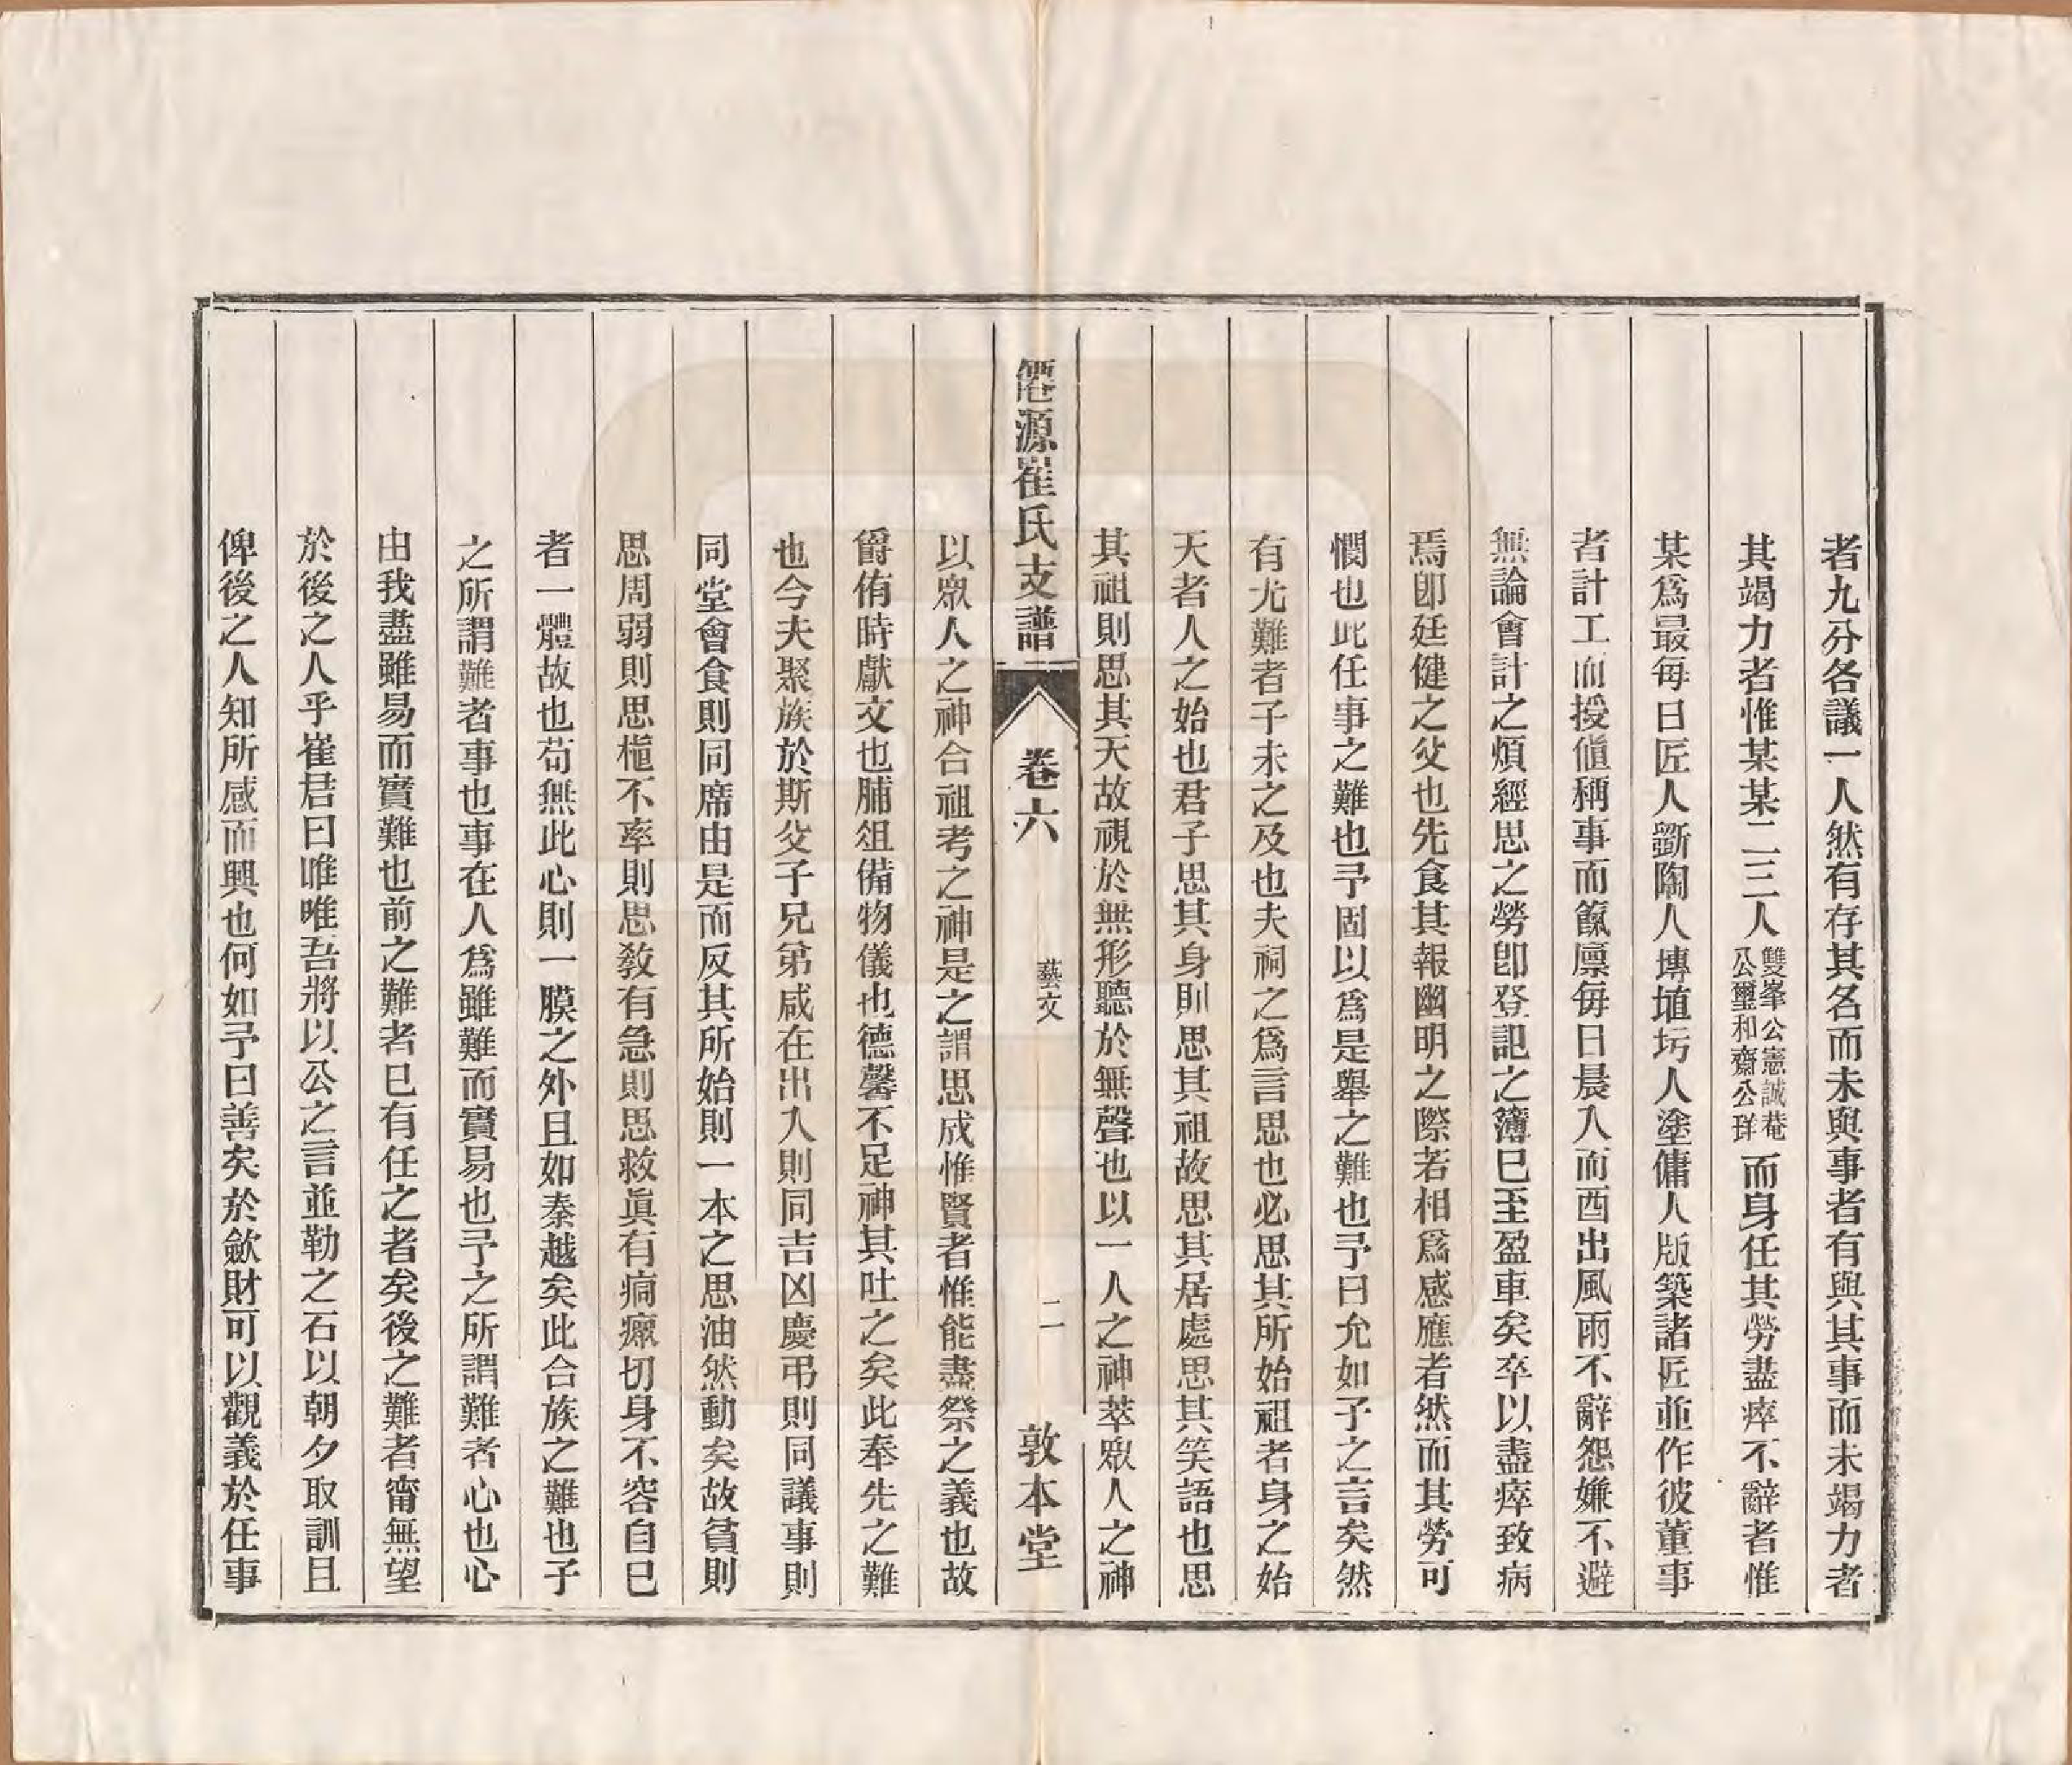 者九分各議一人然有存其名而未與事者有與其事而未竭力者
其竭力者惟某某二三人雙峯公憲誠菴公璽和齋公珜而身任其勞盡瘁不辭者惟
某爲最每日匠人斵陶人塼埴圬人塗傭人版築諸匠並作彼董事
者計工而授値稱事而餼廩每日晨入而酉出風雨不辭怨嫌不避
無論會計之煩經思之勞卽登記之簿已至盈車矣卒以盡瘁致病
焉卽廷健之父也先食其報幽明之際若相爲感應者然而其勞可
憫也此任事之難也予固以爲是舉之難也予曰允如子之言矣然
有尤難者子未之及也夫祠之爲言思也必思其所始祖者身之始
天者人之始也君子思其身則思其祖故思其居處思其笑語也思
其祖則思其天故視於無形聽於無聲也以一人之神萃眾人之神
源崔氏支譜
卷六
藝文
二
敦本堂
以眾人之神合祖考之神是之謂思成惟賢者惟能盡祭之義也故
爵侑時獻文也脯俎備物儀也德馨不足神其吐之矣此奉先之難
也今夫聚族於斯父子兄弟咸在出入則同吉凶慶弔則同議事則
同堂會食則同席由是而反其所始則一本之思油然動矣故貧則
思周弱則思植不率則思敎有急則思救眞有痌瘝切身不容自已
者一體故也苟無此心則一膜之外且如秦越矣此合族之難也子
之所謂難者事也事在人爲雖難而實易也予之所謂難者心也心
由我盡雖易而實難也前之難者已有任之者矣後之難者甯無望
於後之人乎崔君曰唯唯吾將以公之言並勒之石以朝夕取訓且
俾後之人知所感而興也何如予曰善矣於歛財可以觀義於任事